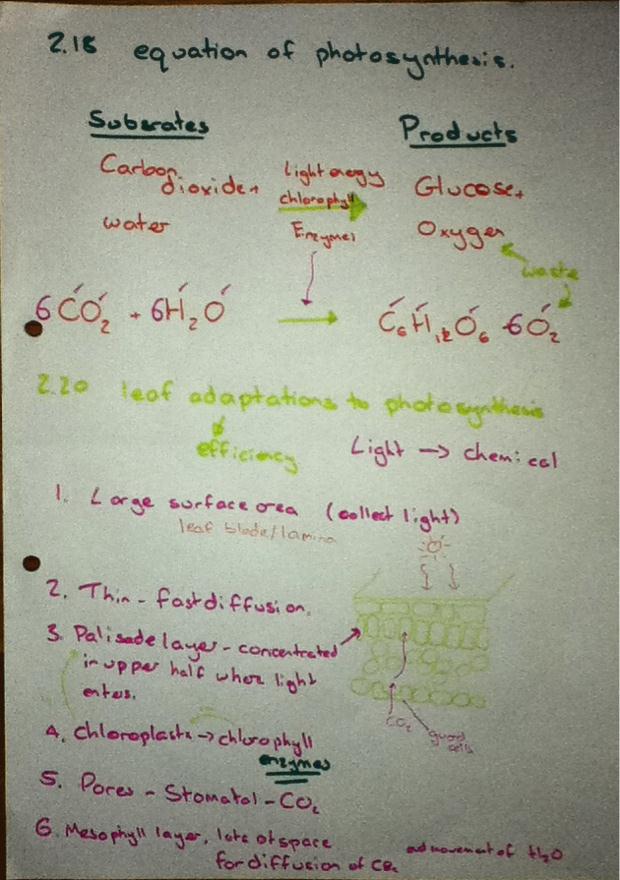 2.18 equation of photosynthesis.
Subsrates
Products
Carbon dioxide +
Light energy
Glucose +
chlorophyll
water
Enzymes
Oxygen
waste
6CO₂ + 6H₂O → C₆H₁₂O₆ 6O₂
2.20 leaf adaptations to photosynthesis
efficiency
Light → chemical
1. Large surface area (collect light)
leaf blade/lamina
2. Thin - fast diffusion.
3. Palisade layer - concentrated
in upper half where light
enters.
4. Chloroplasts → chlorophyll
enzymes
CO₂
guard
cells
5. Pores - Stomatal - CO₂
6. Mesophyll layer, lots of space
for diffusion of CO₂
and movement of H₂O